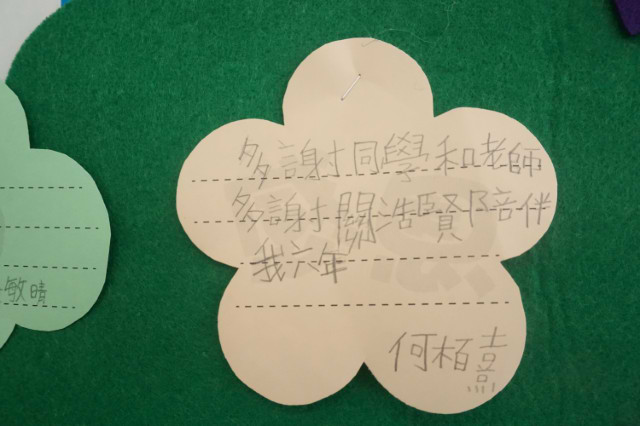 多謝同學和老師
多謝關浩賢陪伴
我六年
何栢熹
敏晴